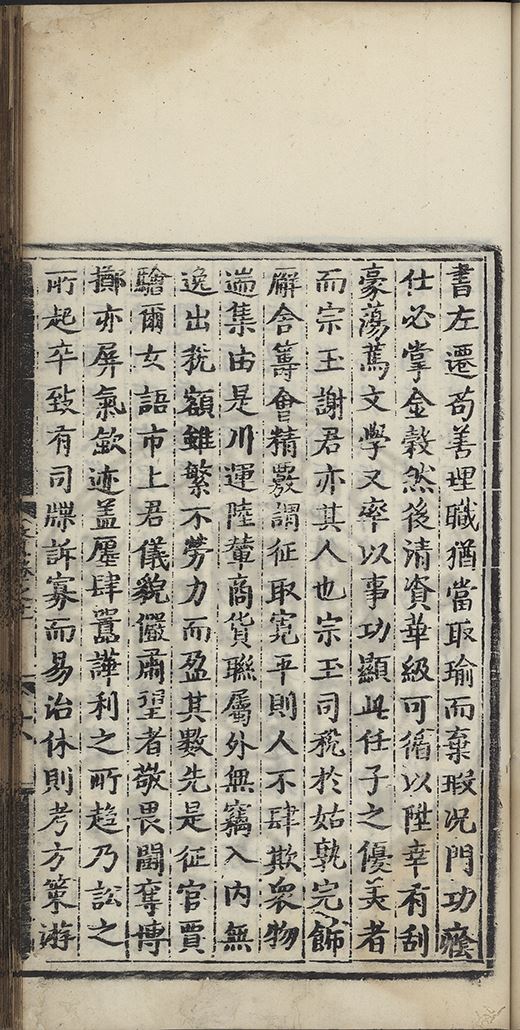 書左遷苟善理職猶當取瑜而棄瑕況門功癊
仕必掌金穀然後清資華級可循以陞幸有刮
豪蕩篤文學又率以事功顯此任子之優美者
而宗玉謝君亦其人也宗玉司稅於姑孰完飾
廨舍籌會精覈謂征取寬平則人不肆欺衆物
遄集由是川運陸輦商貨聯屬外無竊入內無
逸出稅額雖繁不勞力而盈其數先是征官賈
驗爾女語市上君儀貌儼肅望者敬畏鬪奪博
擲亦屏氣歛迹蓋廛肆囂譁利之所趋乃訟之
所起卒致有司牒訴寡而易治休則考方策游